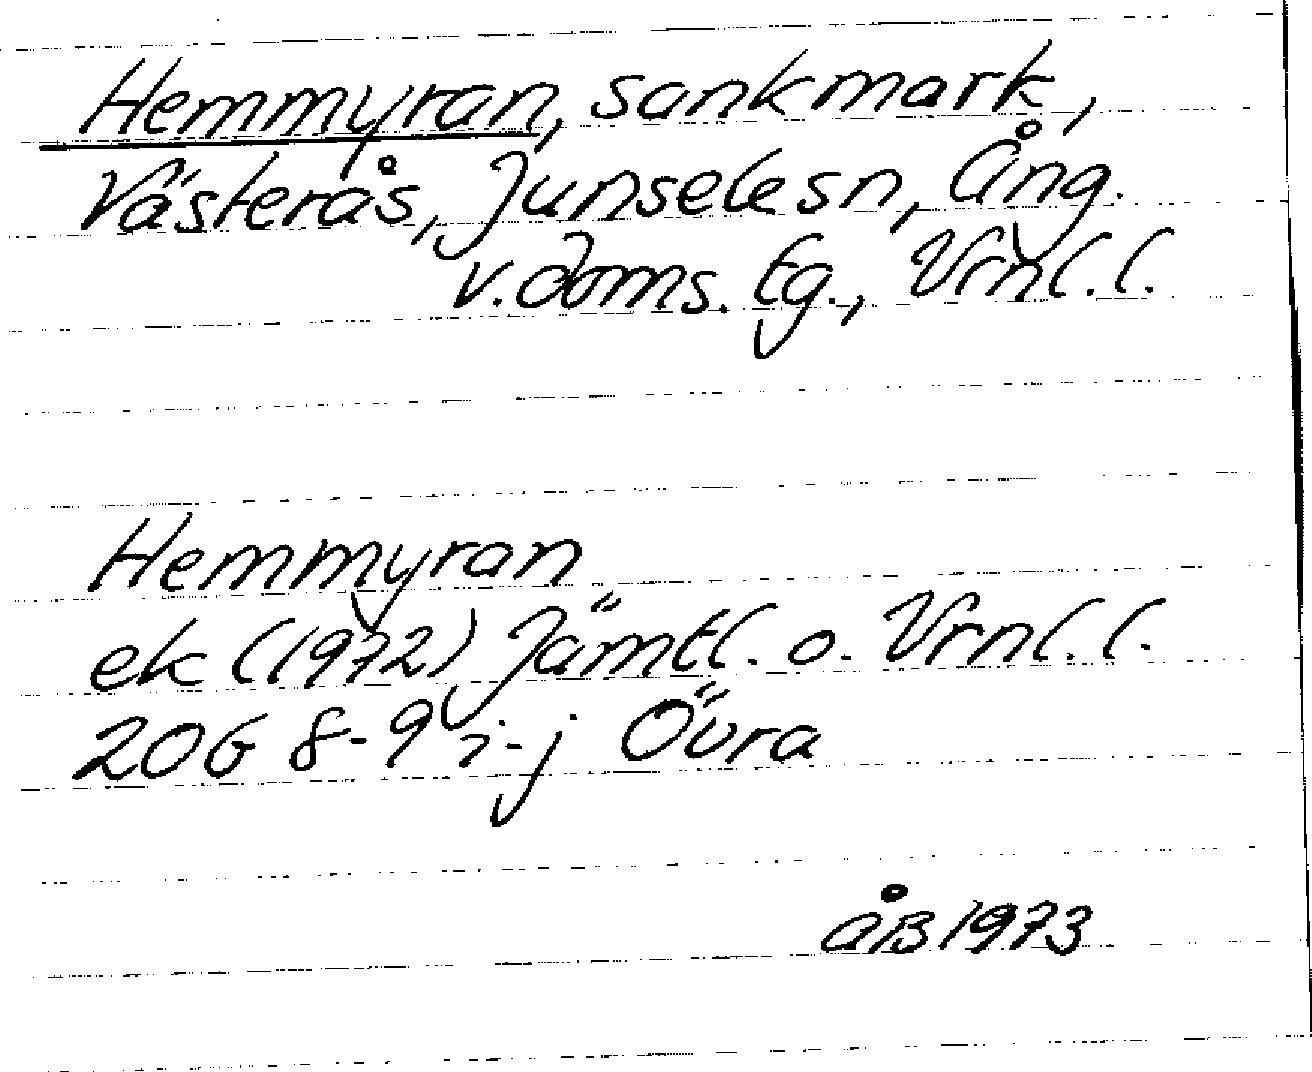 Hemmyran, sankmark,
Västerås, Junselesn, Ång.
v. doms. tg., Vrnl. l.
Hemmyran
ek (1972) Jämtl. o. Vrnl. l.
20G 8-9 i-j Övra
åB 1973